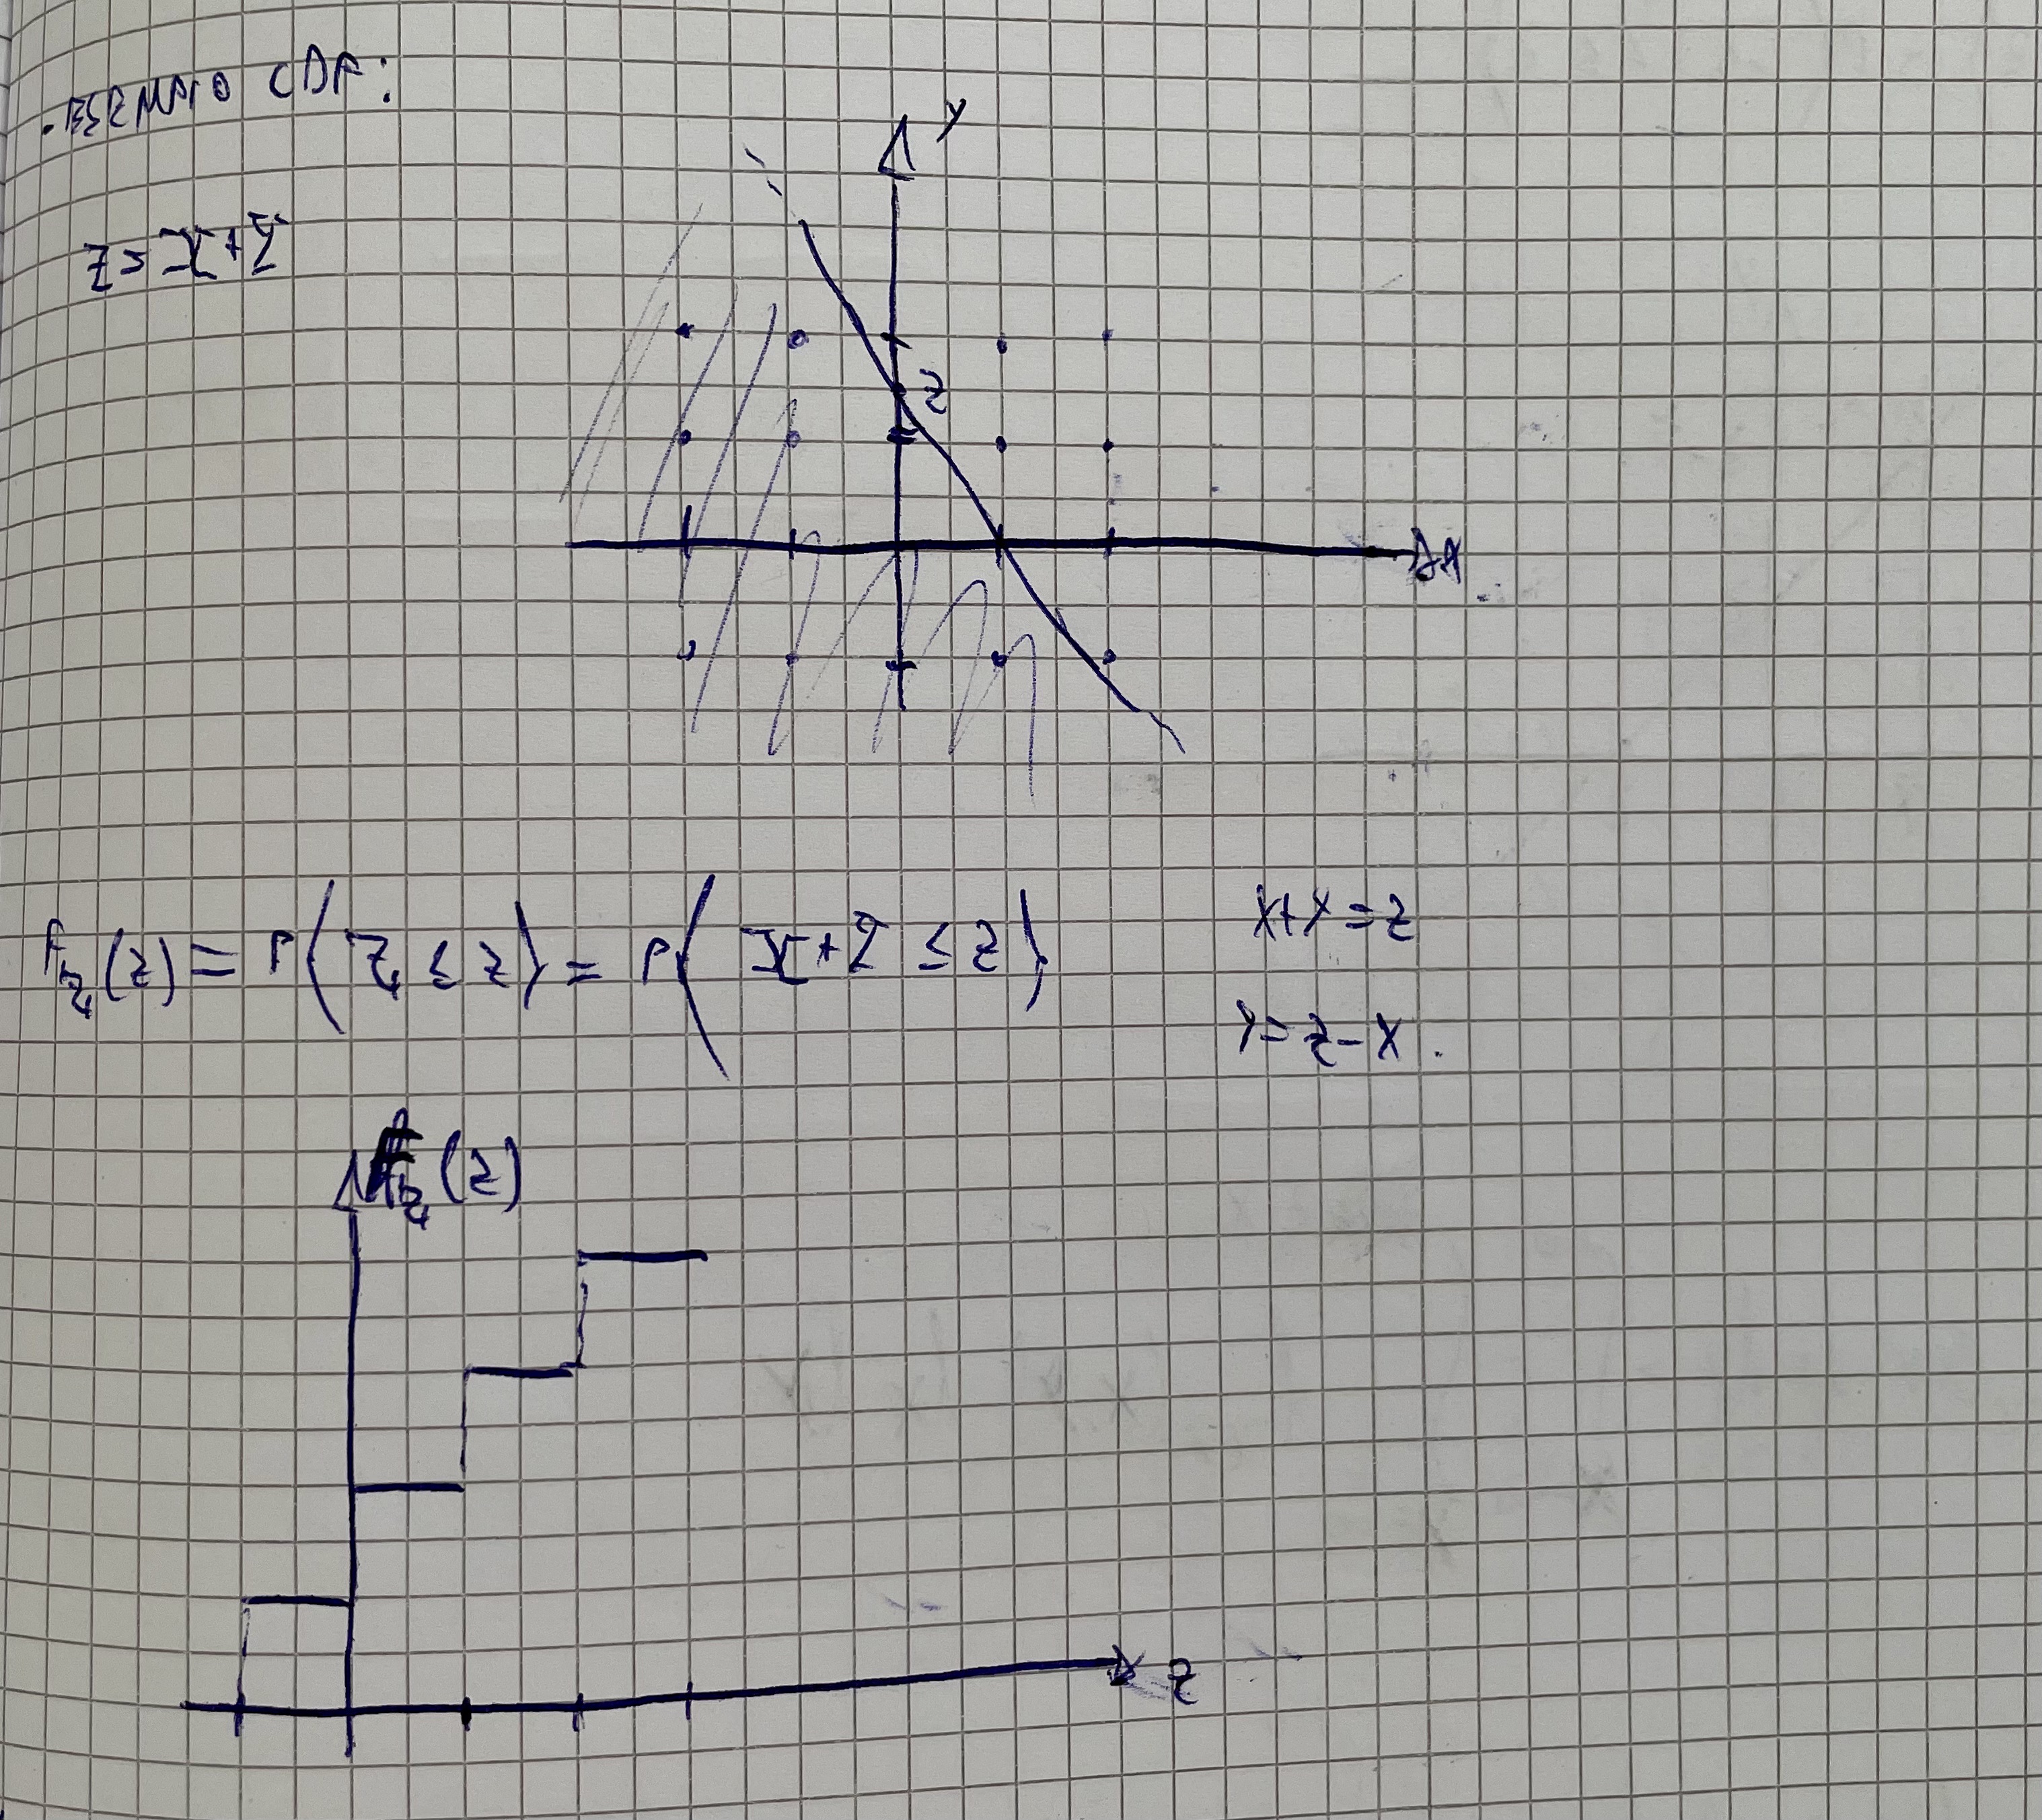 . ESEMPIO CDF:
y
Z = X+Y
z
x
F_Z(z) = P(Z ≤ z) = P(X+Y ≤ z)
x+y=z
y=z-x.
F_Z(z)
z